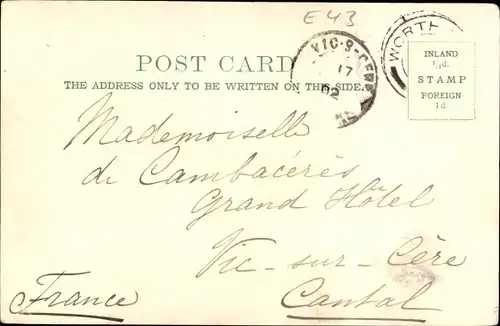 E43
POST CARD
THE ADDRESS ONLY TO BE WRITTEN ON THIS SIDE.
VIC-S-CERE
17
02
WORTH
INLAND
½d.
STAMP
FOREIGN
1d.
Mademoiselle
de Cambacérès
Grand Hôtel
Vic-sur-Cère
France
Cantal